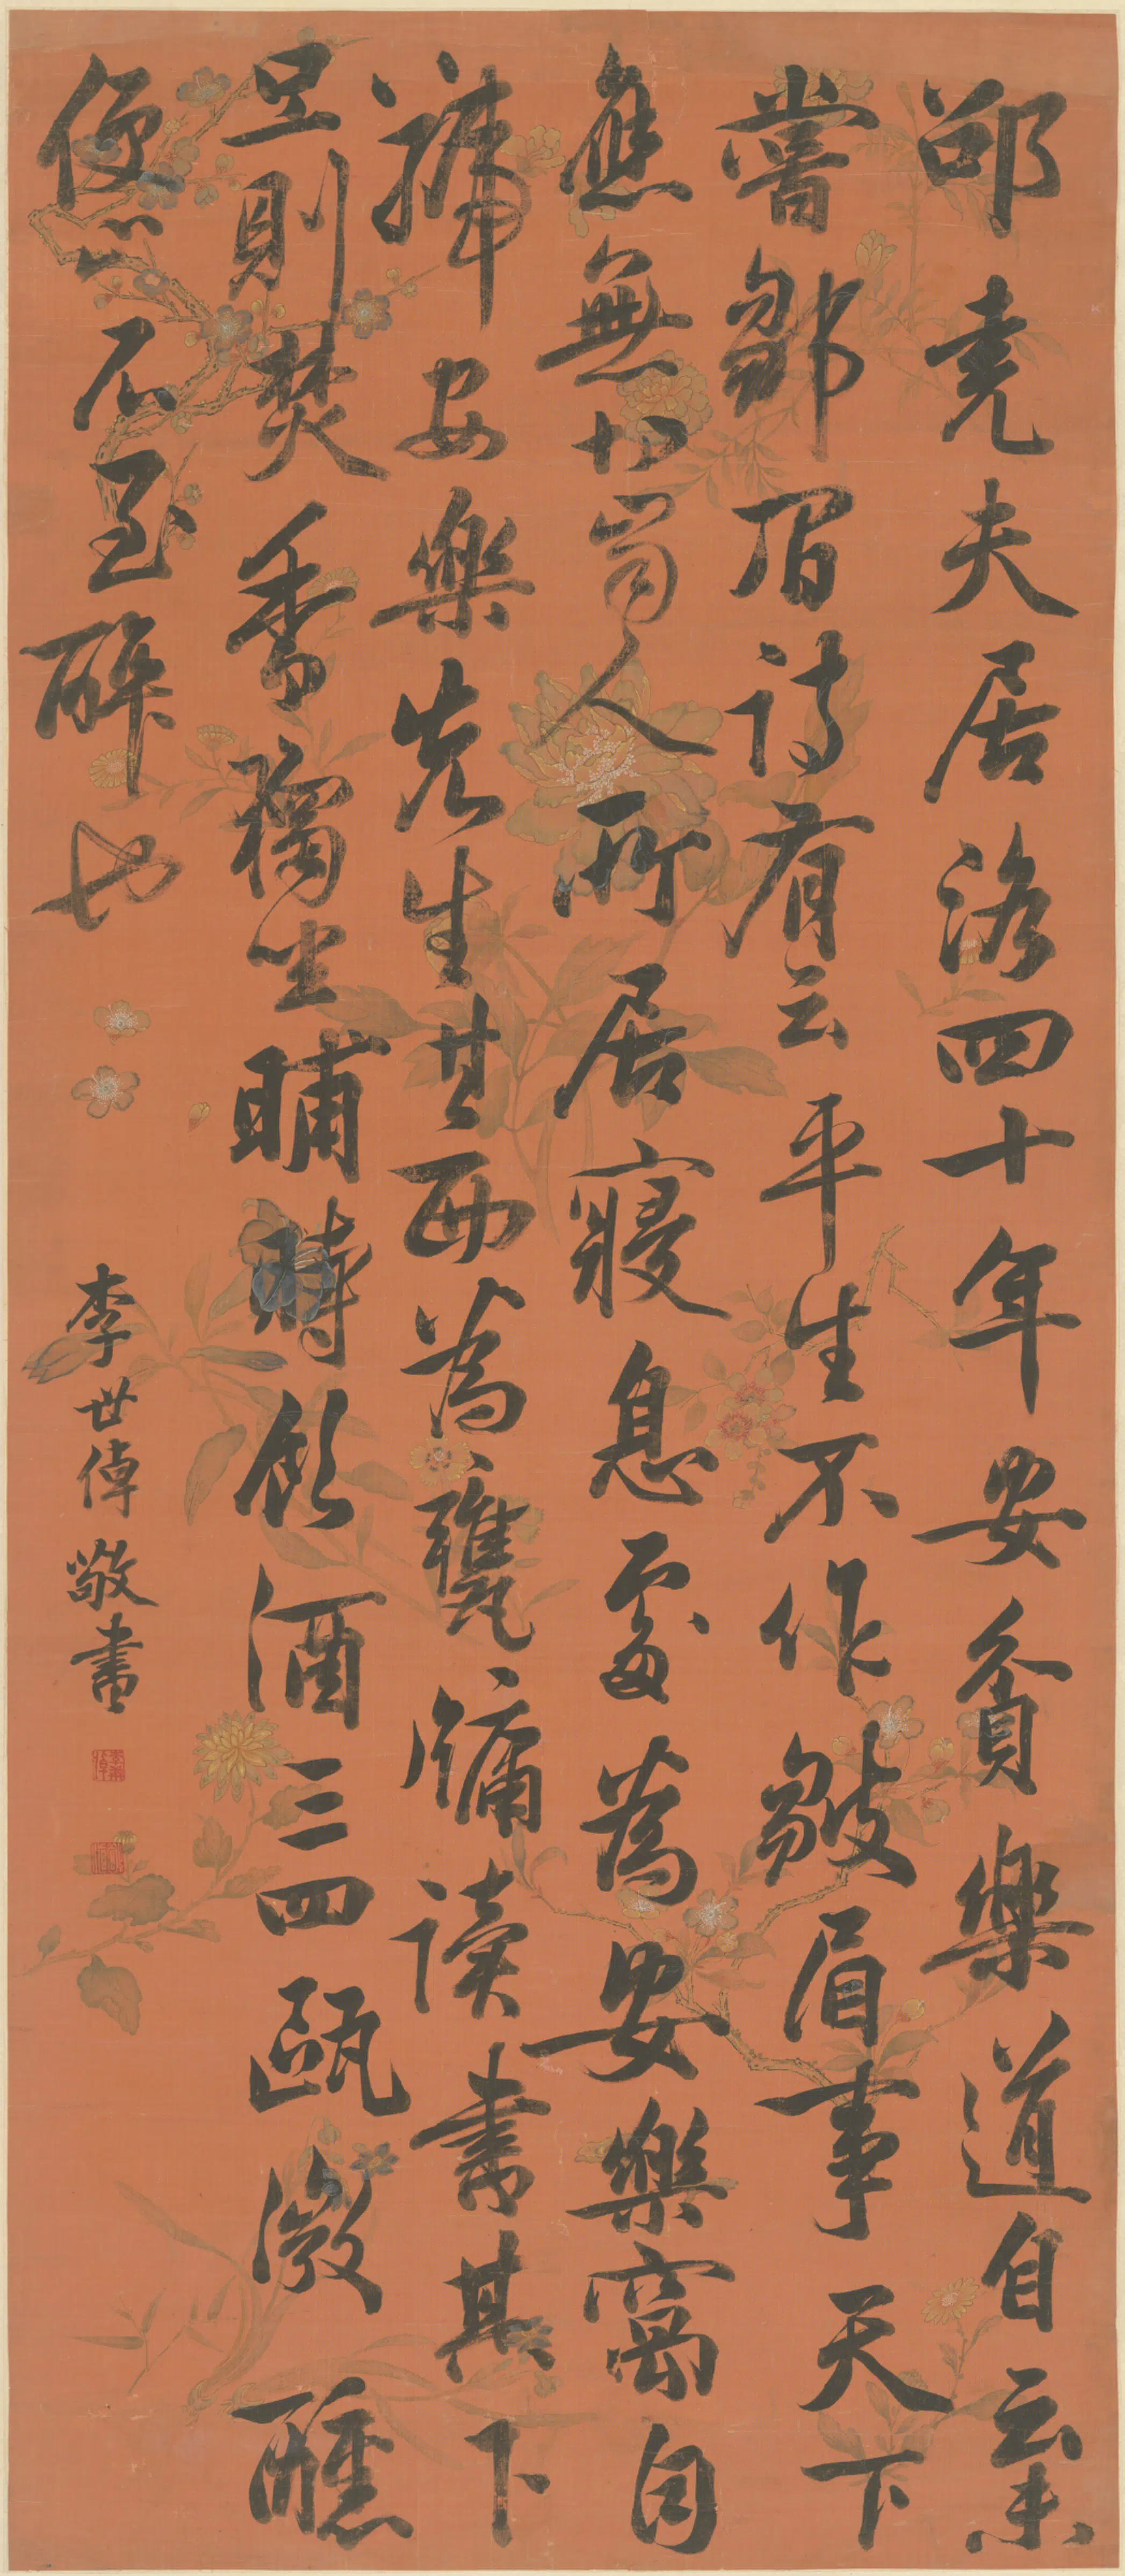 邵堯夫居洛四十年安貧樂道自云未
嘗皺眉詩有云平生不作皺眉事天下
應無切齒人所居寢息處為安樂窩自
號安樂先生其西為甕牖讀書其下
旦則焚香獨坐晡時飲酒三四甌微醺
便止不至醉也
李世倬敬書